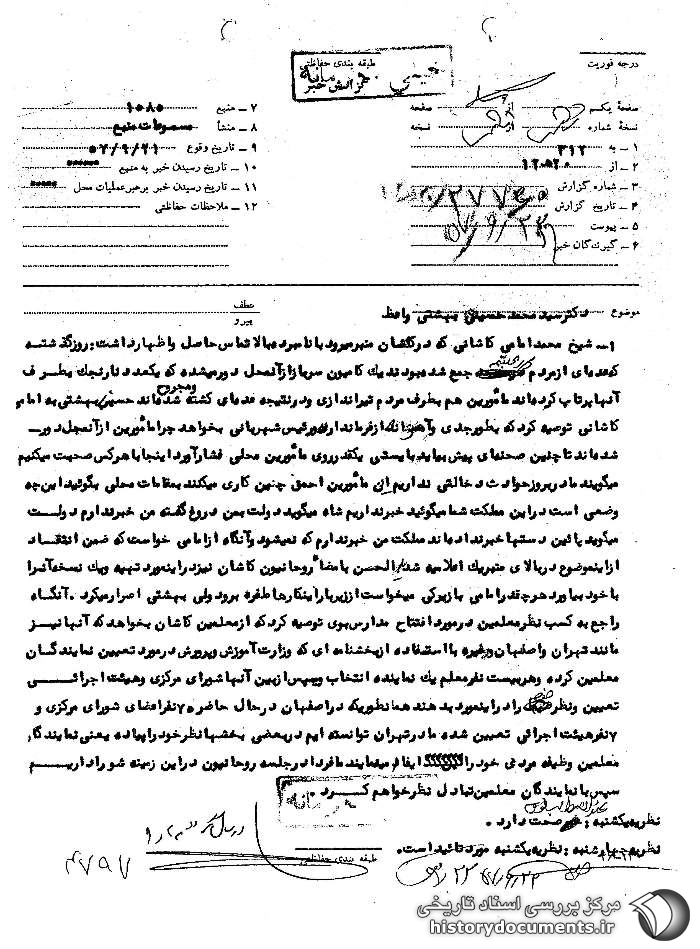 درجه فوریت
طبقه بندی حفاظتی
خیلی محرمانه
گزارش خبر
صفحه یکم از صفحه
نسخه شماره از نسخه
۱ ـ به ۳۱۲
۲ ـ از
۳ ـ شماره گزارش
۴ ـ تاریخ گزارش ۵۷/۹/۲۲
۵ ـ پیوست
۶ ـ گیرندگان خبر
۷ ـ منبع ۱۰۸۵
۸ ـ منشأ مسموعات منبع
۹ ـ تاریخ وقوع ۵۷/۹/۲۱
۱۰ ـ تاریخ رسیدن خبر به منبع
۱۱ ـ تاریخ رسیدن خبر برهبر عملیات محل
۱۲ ـ ملاحظات حفاظتی
موضوع دکتر سید محمد حسینی بهشتی واعظ
عطف
پیرو
۱ـ شیخ محمد امامی کاشانی که در کاشان منبر میرود با نامبرده بالا تماس حاصل و اظهار داشت: روز گذشته
که عده‌ای از مردم جمع شده بودند یک کامیون سرباز از آنمحل دور میشده که یکعدد نارنجک بطرف
آنها پرتاب کرده‌اند مأمورین هم بطرف مردم تیراندازی و در نتیجه عده‌ای کشته و مجروح شده‌اند حسینی بهشتی به امامی
کاشانی توصیه کرد که بطور جدی و از فرماندار و رئیس شهربانی بخواهد چرا مأمورین از آنمحل دور
شده‌اند تا چنین صحنه‌ای پیش بیاید بایستی یکقدر روی مأمورین محلی فشار آورد اینجا با هر کس صحبت میکنیم
میگویند ما در بروز حوادث دخالتی نداریم این مأمورین احمق چنین کاری میکنند بمقامات محلی بگوئید این چه
وضعی است در این مملکت شما میگوئید خبر نداریم شاه میگوید دولت بمن دروغ گفته من خبر ندارم دولت
میگوید پائین دستها خبر نداده‌اند مملکت من خبر ندارم که نمیشود و آنگاه از امامی خواست که ضمن انتقاد
از اینموضوع در بالای منبر یک اعلامیه شدید اللحن با امضاء روحانیون کاشان نیز در اینمورد تهیه و یک نسخه آنرا
با خود بیاورد هر چقدر امامی با زیرکی میخواست از زیر بار اینکارها طفره برود ولی بهشتی اصرار میکرد. آنگاه
راجع به کسب نظر معلمین در مورد افتتاح مدارس بوی توصیه کرد که از معلمین کاشان بخواهد که آنها نیز
مانند تهران و اصفهان و غیره با استفاده از بخشنامه ای که وزارت آموزش و پرورش در مورد تعیین نمایندگان
معلمین کرده و هر بیست نفر معلم یک نماینده انتخاب و سپس از بین آنها شورای مرکزی و هیئت اجرائی
تعیین و نظر خود را در اینمورد بدهند همانطوریکه در اصفهان در حال حاضر ۷۵ نفر اعضای شورای مرکزی و
۷ نفر هیئت اجرائی تعیین شده ما در تهران توانسته ایم در بعضی بخشها نظر خود را پیاده یعنی نمایندگان
معلمین وظیفه مردمی خود را ایفاء مینمایند ما فردا در جلسه روحانیون در این زمینه شور داریم
سپس با نمایندگان معلمین تبادل نظر خواهم کرد.
نظریه یکشنبه: صحت دارد.
نظریه چهارشنبه: نظریه یکشنبه مورد تائید است.
طبقه بندی حفاظتی
۴۷۹۷
مرکز بررسی اسناد تاریخی
historydocuments.ir